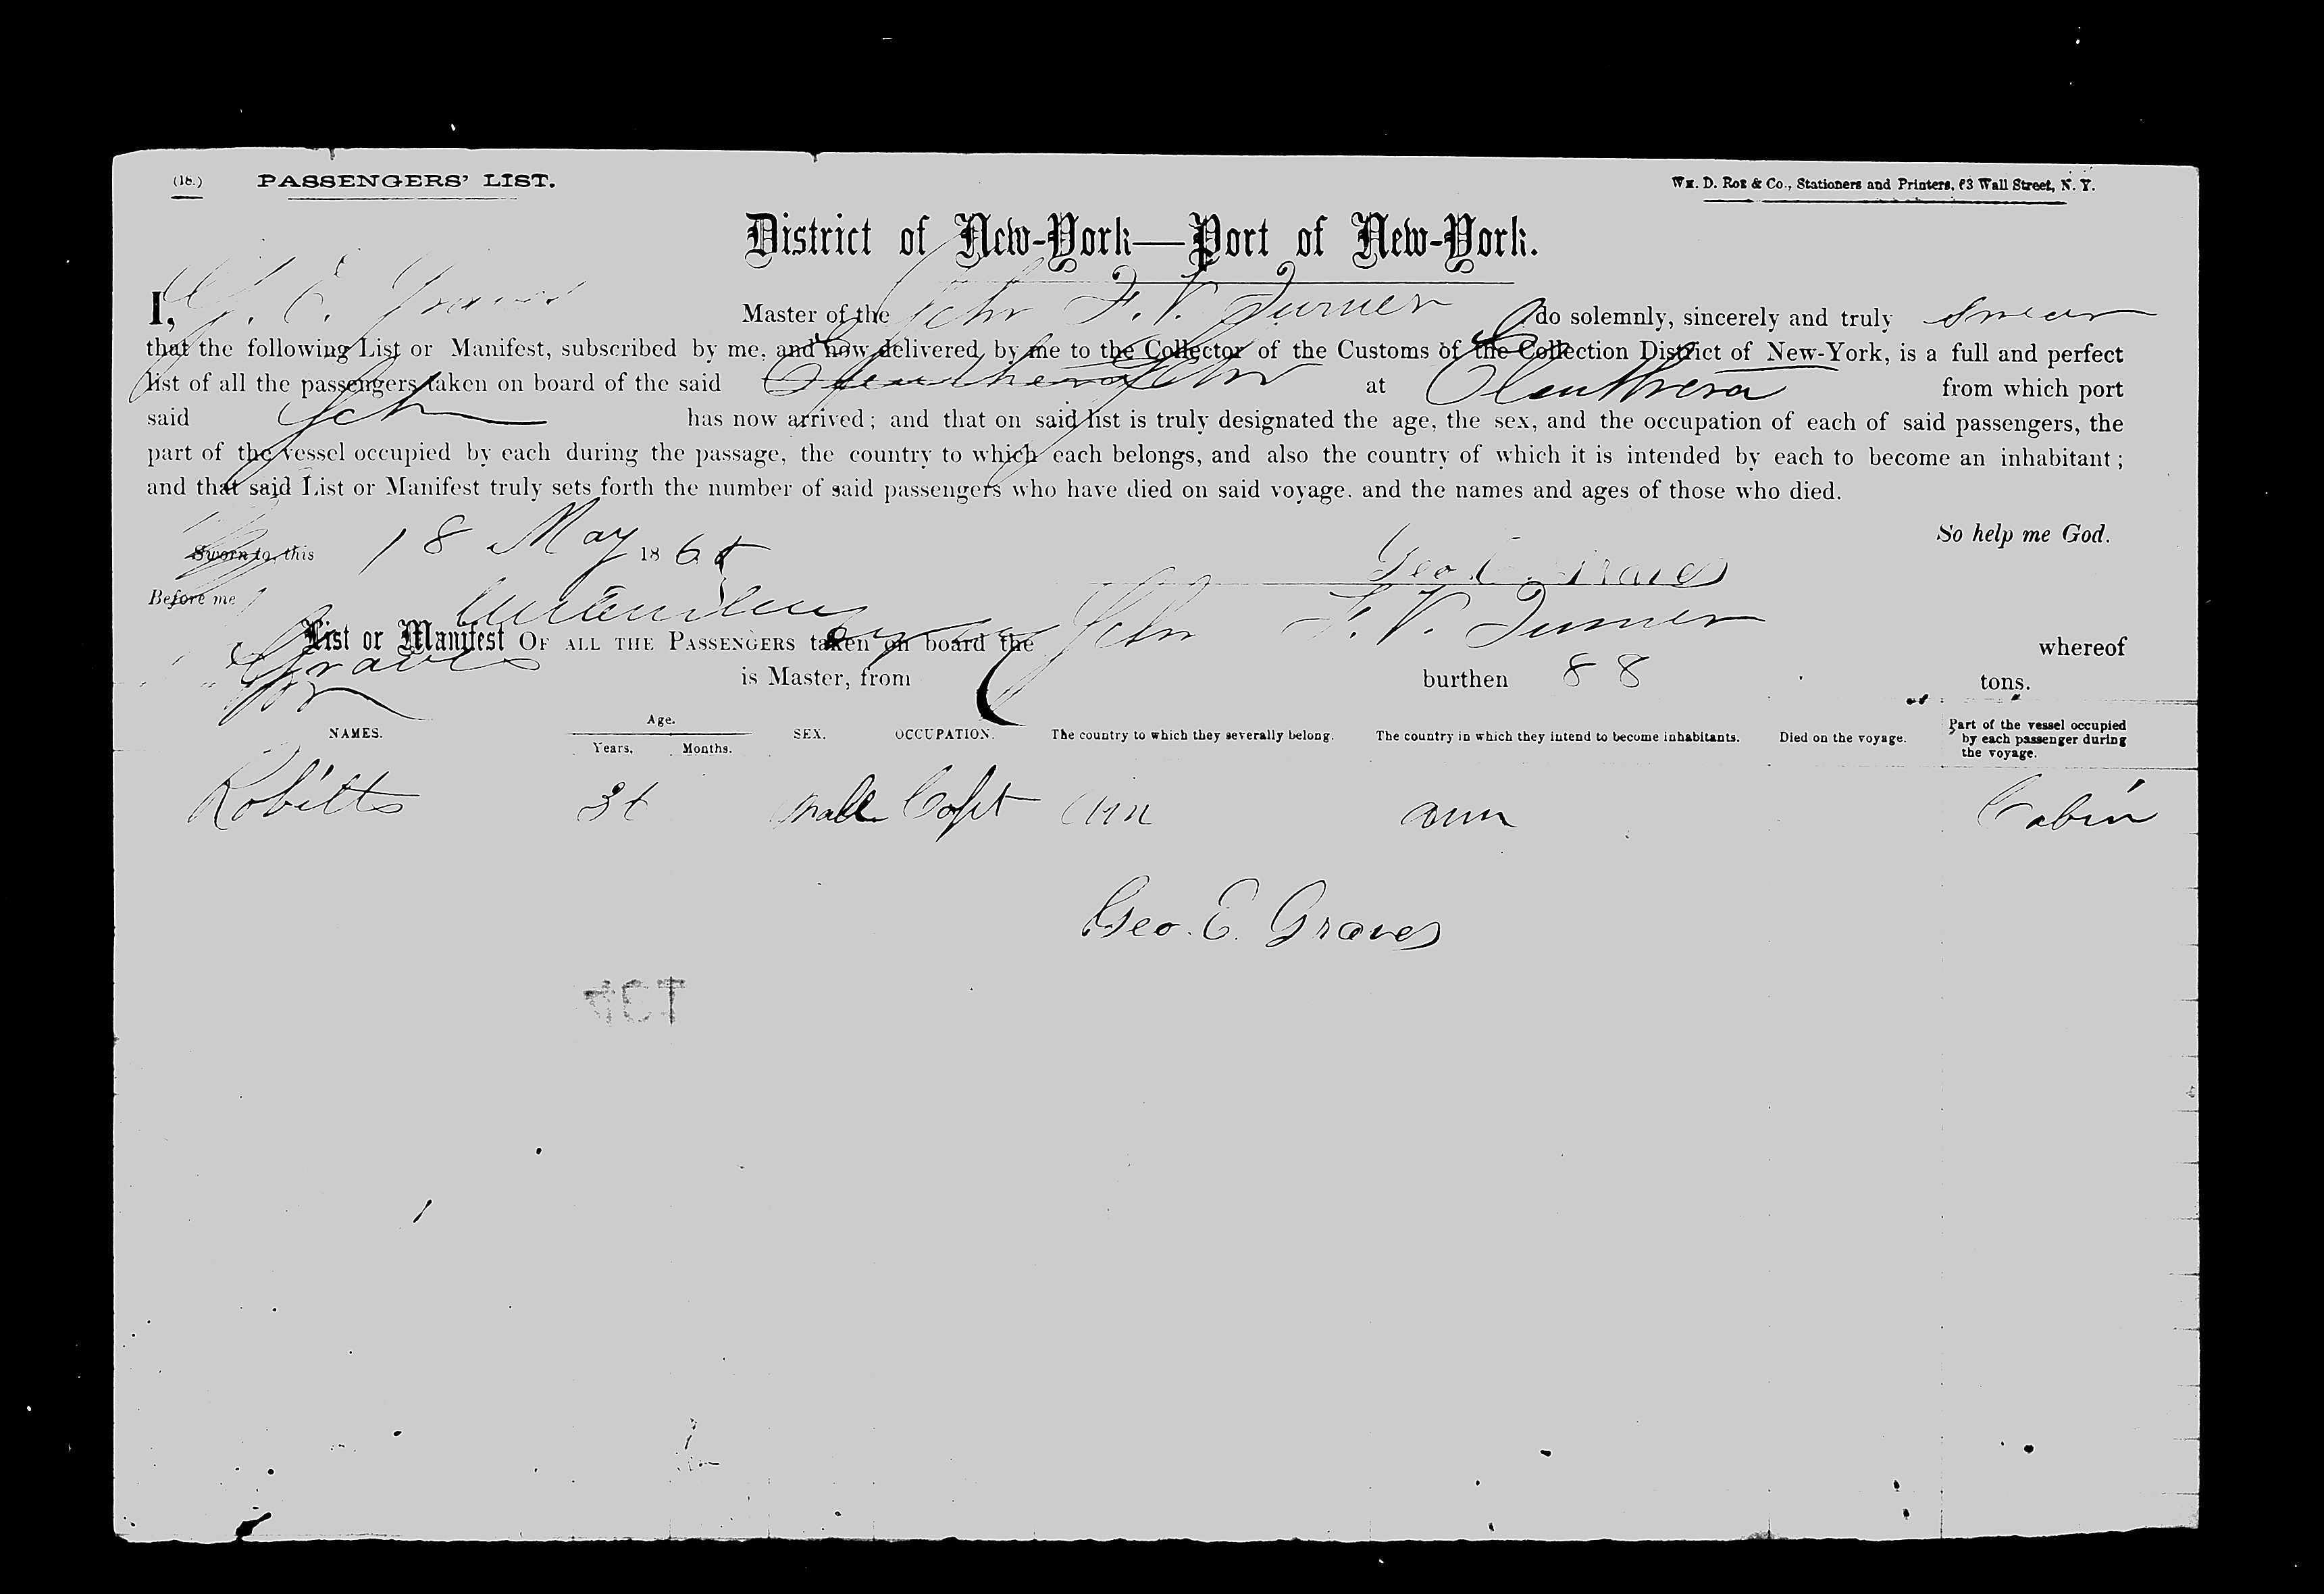 (18.) PASSENGERS' LIST. Wm. D. Roe & Co., Stationers and Printers, 63 Wall Street, N. Y.
District of New-York—Port of New-York.
I, G. E. Graves Master of the Schr F. V. Turner do solemnly, sincerely and truly swear
that the following List or Manifest, subscribed by me, and now delivered by me to the Collector of the Customs of the Collection District of New-York, is a full and perfect
list of all the passengers taken on board of the said Schr at Eleuthera from which port
said Sch has now arrived; and that on said list is truly designated the age, the sex, and the occupation of each of said passengers, the
part of the vessel occupied by each during the passage, the country to which each belongs, and also the country of which it is intended by each to become an inhabitant;
and that said List or Manifest truly sets forth the number of said passengers who have died on said voyage. and the names and ages of those who died.
So help me God.
Sworn to this 18 May 186 Geo. E. Graves
Before me
List or Manifest OF ALL THE PASSENGERS taken on board the Schr F. V. Turner whereof
Graves is Master, from burthen 88 tons.
NAMES. Age. Years. Months. SEX. OCCUPATION. The country to which they severally belong. The country in which they intend to become inhabitants. Died on the voyage. Part of the vessel occupied by each passenger during the voyage.
Robitts male Capt Am Am Cabin
Geo. E. Graves